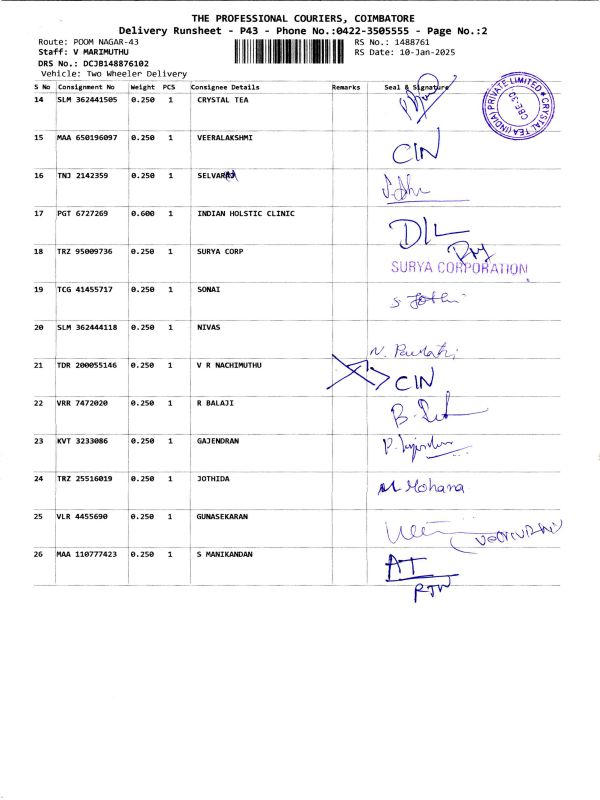 THE PROFESSIONAL COURIERS, COIMBATORE
Delivery Runsheet - P43 - Phone No.:0422-3505555 - Page No.:2
Route: POOM NAGAR-43 RS No.: 1488761
Staff: V MARIMUTHU RS Date: 10-Jan-2025
DRS No.: DCJB148876102
Vehicle: Two Wheeler Delivery
S No Consignment No Weight PCS Consignee Details Remarks Seal & Signature
14 SLM 362441505 0.250 1 CRYSTAL TEA
CRYSTAL TEA (INDIA) PRIVATE LIMITED
CBE-30
15 MAA 650196097 0.250 1 VEERALAKSHMI CIN
16 TNJ 2142359 0.250 1 SELVARAJ
17 PGT 6727269 0.600 1 INDIAN HOLSTIC CLINIC D/L
18 TRZ 95009736 0.250 1 SURYA CORP SURYA CORPORATION
19 TCG 41455717 0.250 1 SONAI S. Jothi
20 SLM 362444118 0.250 1 NIVAS
21 TDR 200055146 0.250 1 V R NACHIMUTHU CIN
22 VRR 7472020 0.250 1 R BALAJI
23 KVT 3233086 0.250 1 GAJENDRAN
24 TRZ 25516019 0.250 1 JOTHIDA M Mohana
25 VLR 4455690 0.250 1 GUNASEKARAN
26 MAA 110777423 0.250 1 S MANIKANDAN AT
RTN